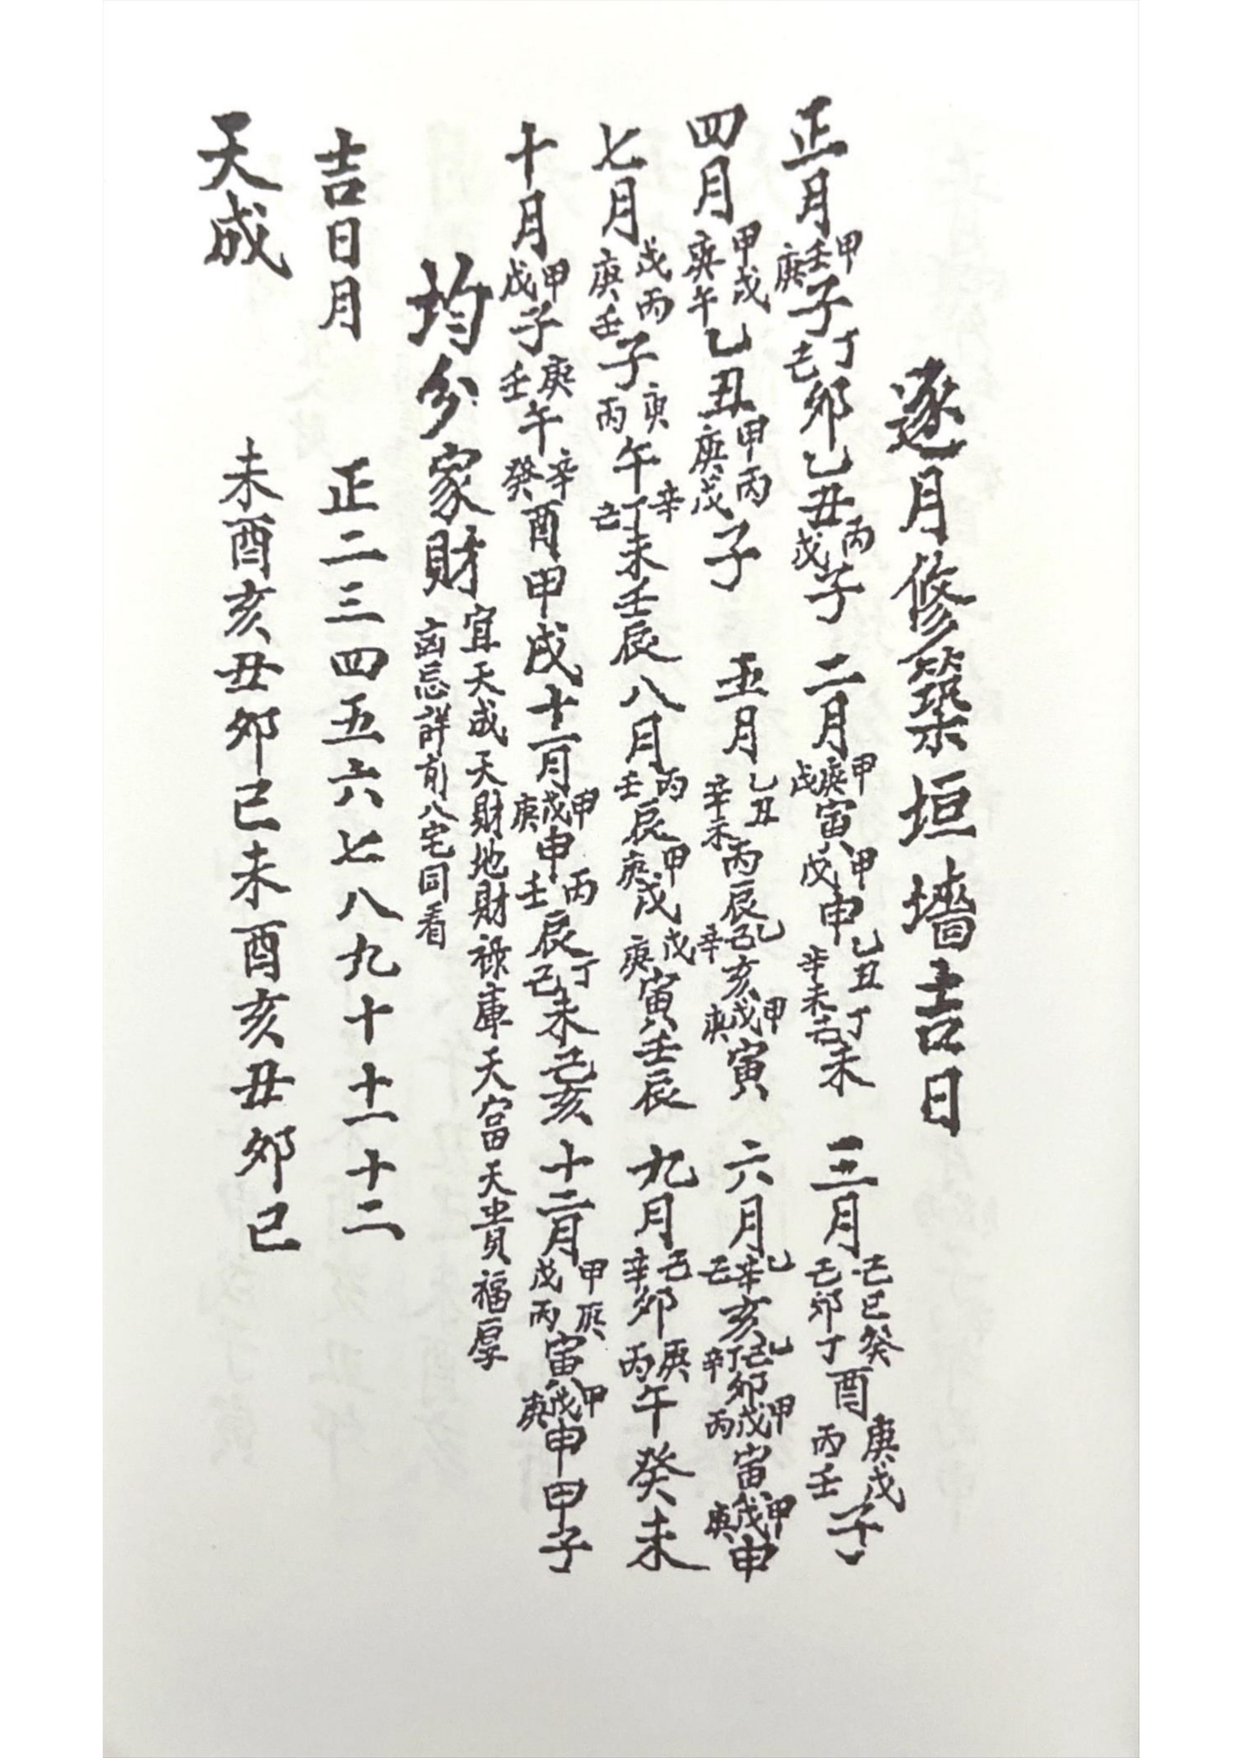 逐月修築垣墻吉日
正月甲壬庚子丁己卯乙丑丙戊子　二月甲庚戊寅甲戊申乙丑辛未丁己未　三月己巳癸己卯丁酉庚戌丙壬子
四月甲戌庚午乙丑甲丙庚戊子　五月乙丑辛未丙辰乙己辛亥甲戊庚寅　六月乙辛己亥乙己丁辛卯甲戊丙寅甲戊庚申
七月戊丙庚壬子庚丙午辛丁己未壬辰八月丙壬辰甲庚戌戊庚寅壬辰　九月己辛卯庚丙午癸未
十月甲戊子庚壬午辛癸酉甲戌十一月甲戊庚申丙壬辰丁己未己亥十二月甲庚戊丙寅甲戊庚申甲子
均分家財宜天成天財地財祿庫天富天貴福厚
凶忌詳前八宅同看
吉日月　正二三四五六七八九十十一十二
天成　未酉亥丑卯巳未酉亥丑卯巳